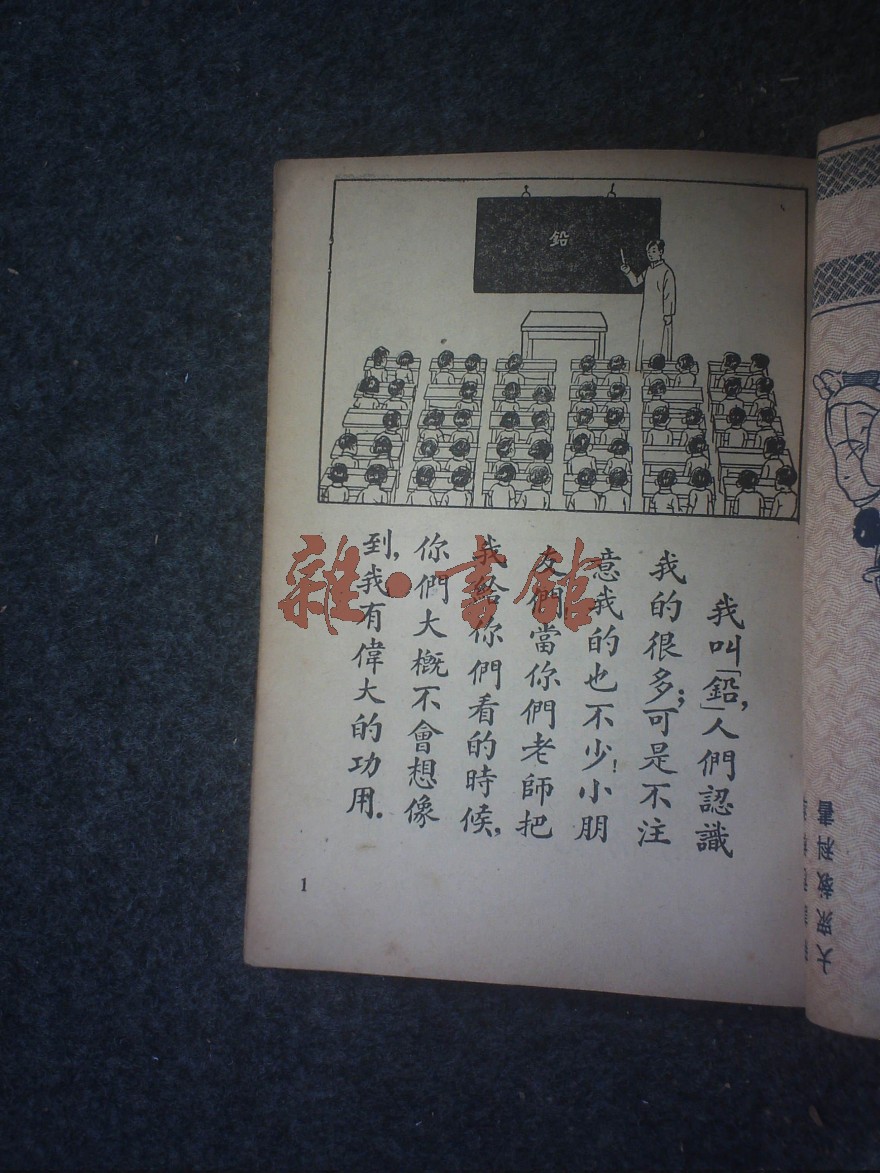 鉛
我叫「鉛」,人們認識
我的很多;可是不注
意我的也不少!小朋
友們,當你們老師把
我給你們看的時候,
你們大概不會想像
到,我有偉大的功用.
1
雜·書館
大眾教科書